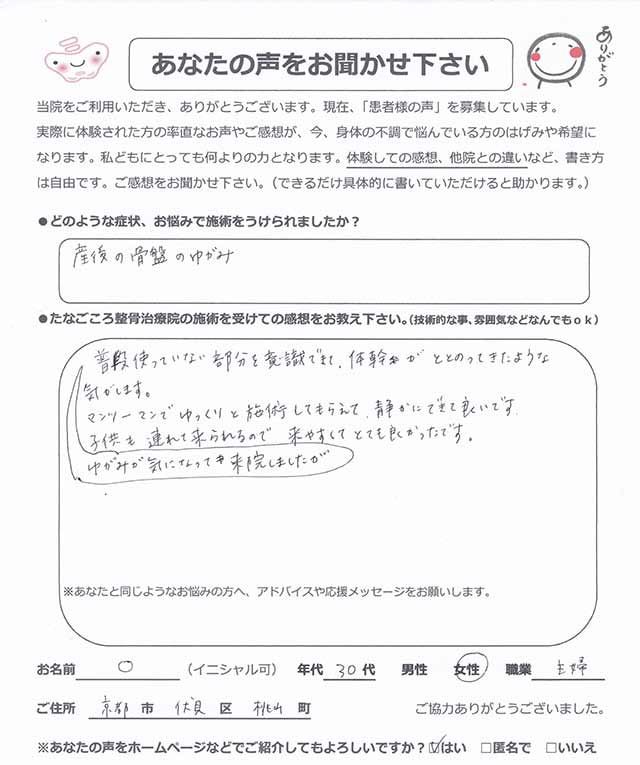 ありがとう
あなたの声をお聞かせ下さい
当院をご利用いただき、ありがとうございます。現在、「患者様の声」を募集しています。
実際に体験された方の率直なお声やご感想が、今、身体の不調で悩んでいる方のはげみや希望に
なります。私どもにとっても何よりの力となります。体験しての感想、他院との違いなど、書き方
は自由です。ご感想をお聞かせ下さい。（できるだけ具体的に書いていただけると助かります。）
●どのような症状、お悩みで施術をうけられましたか？
産後の骨盤のゆがみ
●たなごころ整骨治療院の施術を受けての感想をお教え下さい。（技術的な事、雰囲気などなんでもｏｋ）
普段使っていない部分を意識できて、体幹がととのってきたような
気がします。
マンツーマンでゆっくりと施術してもらえて、静かにできて良いです。
子供も連れて来られるので来やすくてとても良かったです。
ゆがみが気になって来院しましたが
※あなたと同じようなお悩みの方へ、アドバイスや応援メッセージをお願いします。
お名前 〇 （イニシャル可） 年代 30 代 男性 女性 職業 主婦
ご住所 京都 市 伏見 区 桃山 町 ご協力ありがとうございました。
※あなたの声をホームページなどでご紹介してもよろしいですか？ ☑はい □匿名で □いいえ